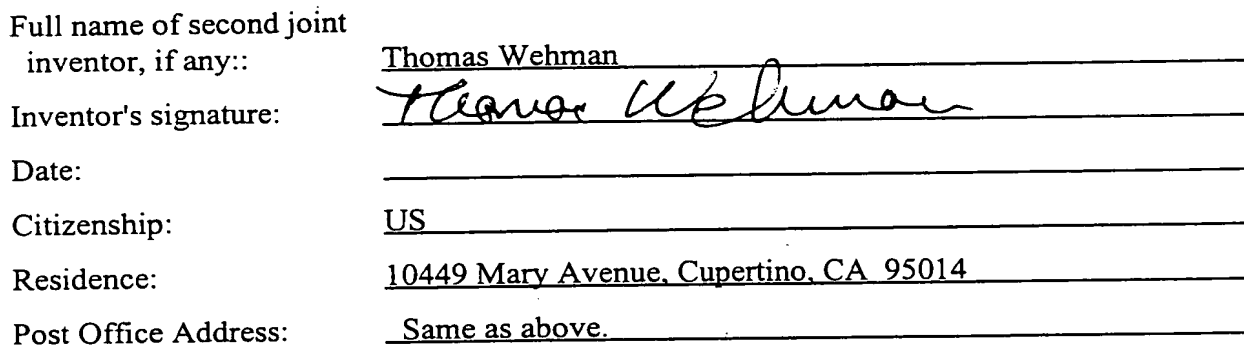 Full name of second joint
inventor, if any:: Thomas Wehman
Inventor's signature: Thomas Wehman
Date:
Citizenship: US
Residence: 10449 Mary Avenue, Cupertino, CA 95014
Post Office Address: Same as above.